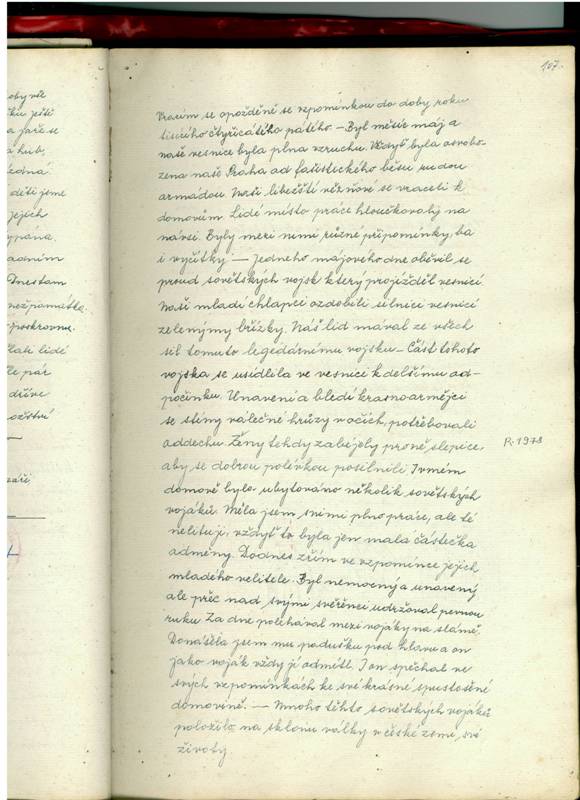 107.
Vracím se opožděně se vzpomínkou do doby roku
tisícího čtyřicátého pátého – Byl měsíc máj a
naše vesnice byla plna vzruchu. Vždyť byla osvobo-
zena naše Praha od fašistického běsu rudou
armádou. Naši libečtí vězňové se vraceli k
domovům. Lidé místo práce hloučkovali na
návsi. Byly mezi nimi různé připomínky, ba
i vyčítky. – Jednoho májového dne oběvil se
proud sovětských vojsk který projížděl vesnicí.
Naši mladí chlapci ozdobili silnici vesnicí
zelenýmy břízky. Náš lid mával ze všech
sil tomuto legedárnímu vojsku – Část tohoto
vojska se usídlila ve vesnici k delšímu od-
počinku. Unavení a bledí krasnoarmějci
se stíny válečné hrůzy v očích, potřebovali
oddechu. Ženy tehdy zabíjely pro ně slepice,
aby se dobrou polévkou posilnili. I v mém
domově bylo ubytováno několik sovětských
vojáků. Měla jsem s nimi plno práce, ale té
nelituji, vždyť to byla jen malá částečka
odměny. Dodnes zřím ve vzpomínce jejich
mladého velitele. Byl nemocný a unavený
ale přec nad svými svěřenci udržoval pevnou
ruku. Za dne poléhával mezi vojáky na slámě.
Donášela jsem mu podušku pod hlavu a on
jako voják vždy jí odmítl. I on spěchal ve
svých vzpomínkách ke své krásné spustošené
domovině. – Mnoho těchto sovětských vojáků
položilo na sklonu války v české zemi své
životy.
R. 1978
oby vše
ku ještě
a faře se
a hub,
jedná.
děti jsme
jejich
ypána,
adním
Dnes tam
nezpamátka.
poskrovnu.
lati lidé
Ze pár
dříve
ožství
záři,